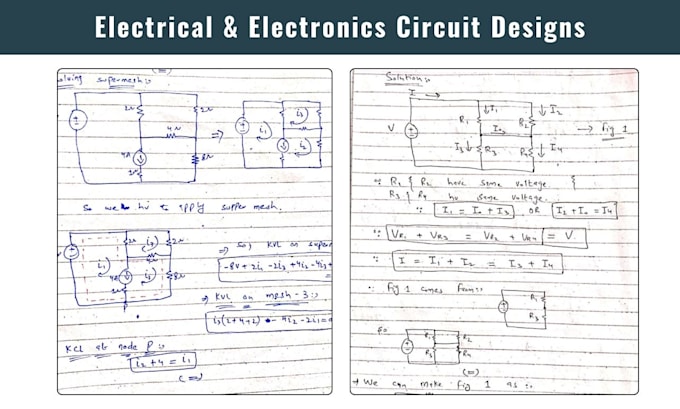 Electrical & Electronics Circuit Designs
solving supermesh :
2Ω
2Ω
4Ω
4A
8Ω
i1
i2
i3
So we hv to apply supper mesh.
i1
i2
i3
2Ω
2Ω
4A
8Ω
=> So, KVL on super
-8V + 2i1 - 2i3 + 4i2 - 4i3 +
=> KVL on mesh - 3 :
KCL at node P :
i2 + 4 = i1
(=>)
Solution :
I
V
I1
I2
R1
R2
Io
I3
R3
R4
I4
-> Fig 1
R1 & R2 have same voltage
R3 & R4 hv same voltage.
I1 = Io + I3 OR I2 + Io = I4
VR1 + VR3 = VR2 + VR4 = V
I = I1 + I2 = I3 + I4
Fig 1 comes from :
R1
R3
R1
R2
R3
R4
(=>)
We can make fig 1 as :